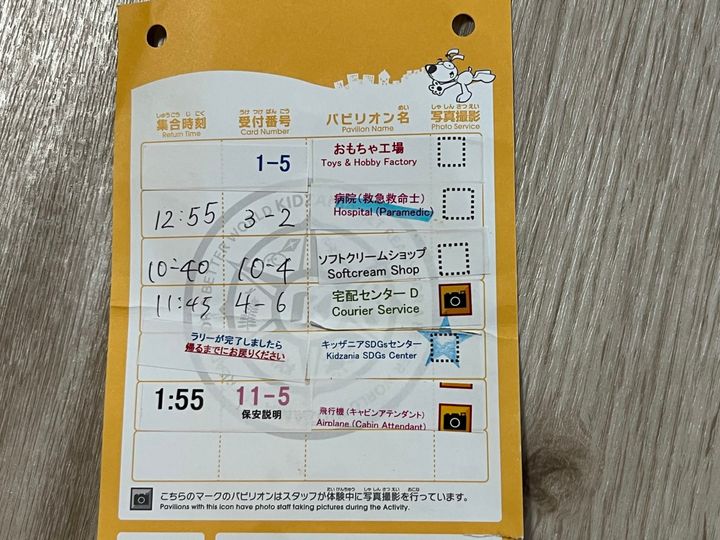 しゅうごう じこく
集合時刻
Return Time
うけ つけ ばん ごう
受付番号
Card Number
めい
パビリオン名
Pavilion Name
しゃ しん さつ えい
写真撮影
Photo Service
1-5
おもちゃ工場
Toys & Hobby Factory
12:55
3-2
病院(救急救命士)
Hospital (Paramedic)
10:40
10-4
ソフトクリームショップ
Softcream Shop
11:45
4-6
宅配センター D
Courier Service
ラリーが完了しましたら
帰るまでにお戻りください
キッザニアSDGsセンター
Kidzania SDGs Center
1:55
11-5
保安説明
飛行機(キャビンアテンダント)
Airplane (Cabin Attendant)
BETTER WORLD KIDZANIA
たい けんちゅう しゃ しん さつ えい おこな
こちらのマークのパビリオンはスタッフが体験中に写真撮影を行っています。
Pavilions with this icon have photo staff taking pictures during the Activity.